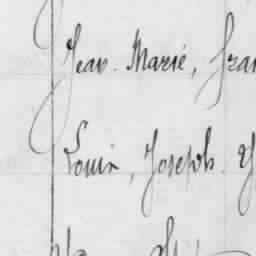 Jean. Marie, fran
Louis, Joseph.